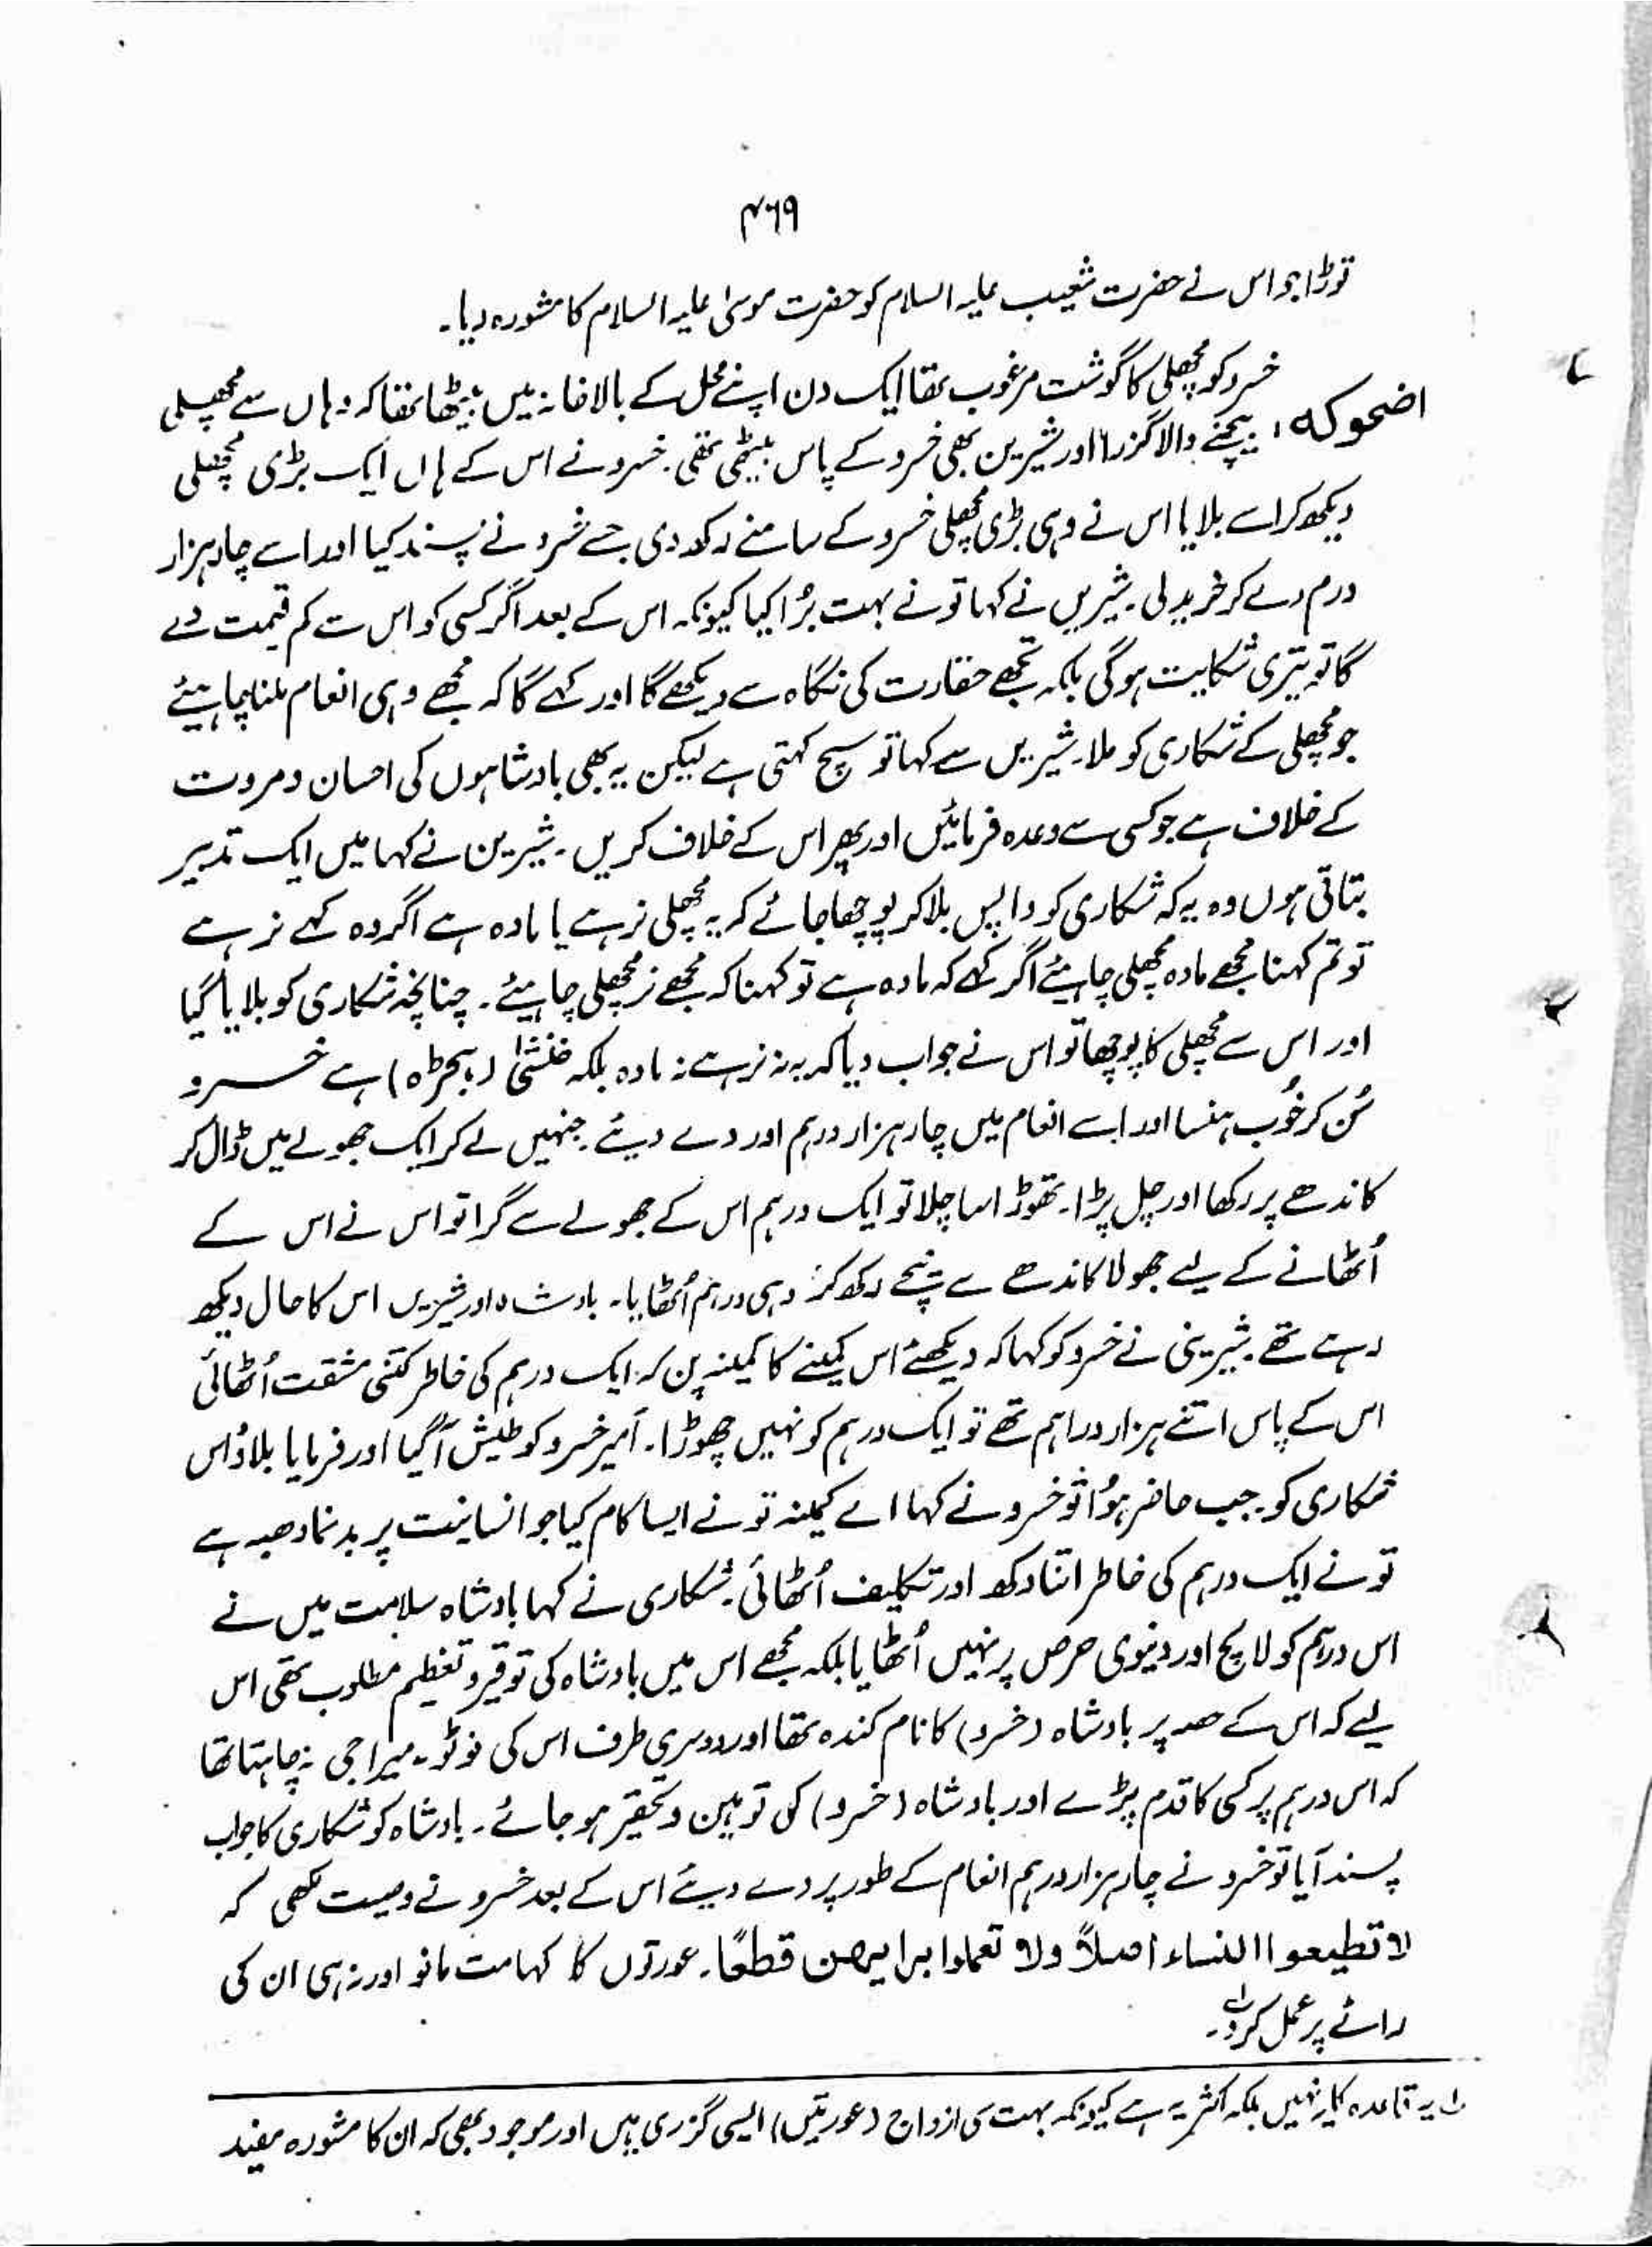 ۴۶۹
توڑا جو اس نے حضرت شعیب علیہ السلام کو حضرت موسیٰ علیہ السلام کا مشورہ دیا۔
اضحوکہ: خسرو کو مچھلی کا گوشت مرغوب تھا ایک دن اپنے محل کے بالاخانہ میں بیٹھا تھا کہ وہاں سے مچھلی
بیچنے والا گزرا اور شیرین بھی خسرو کے پاس بیٹھی تھی۔ خسرو نے اس کے ہاں ایک بڑی مچھلی
دیکھ کر اسے بلایا اس نے وہی بڑی مچھلی خسرو کے سامنے رکھ دی جسے خسرو نے پسند کیا اور اسے چار ہزار
درم دے کر خرید لی۔ شیریں نے کہا تو نے بہت بُرا کیا کیونکہ اس کے بعد اگر کسی کو اس سے کم قیمت دے
گا تو تیری شکایت ہو گی بلکہ تجھے حقارت کی نگاہ سے دیکھے گا اور کہے گا کہ مجھے وہی انعام ملنا چاہیئے
جو مچھلی کے شکاری کو ملا۔ شیریں سے کہا تو سچ کہتی ہے لیکن یہ بھی بادشاہوں کی احسان و مروت
کے خلاف ہے جو کسی سے وعدہ فرمائیں اور پھر اس کے خلاف کریں۔ شیرین نے کہا میں ایک تدبیر
بتاتی ہوں وہ یہ کہ شکاری کو واپس بلا کر پوچھا جائے کہ یہ مچھلی نر ہے یا مادہ ہے اگر وہ کہے نر ہے
تو تم کہنا مجھے مادہ مچھلی چاہیئے اگر کہے کہ مادہ ہے تو کہنا کہ مجھے نر مچھلی چاہیئے۔ چنانچہ شکاری کو بلایا گیا
اور اس سے مچھلی کا پوچھا تو اس نے جواب دیا کہ یہ نہ نر ہے نہ مادہ بلکہ خنثیٰ (ہیجڑہ) ہے خسرو
سُن کر خُوب ہنسا اور اسے انعام میں چار ہزار درہم اور دے دیئے جنہیں لے کر ایک جھولے میں ڈال کر
کاندھے پر رکھا اور چل پڑا۔ تھوڑا سا چلا تو ایک درہم اس کے جھولے سے گرا تو اس نے اس کے
اُٹھانے کے لیے جھولا کاندھے سے نیچے رکھ کر وہی درہم اُٹھایا۔ بادشاہ اور شیریں اس کا حال دیکھ
رہے تھے۔ شیرینی نے خسرو کو کہا کہ دیکھئے اس کمینے کا کمینہ پن کہ ایک درہم کی خاطر کتنی مشقت اُٹھائی
اس کے پاس اتنے ہزار دراہم تھے تو ایک درہم کو نہیں چھوڑا۔ امیر خسرو کو طیش آ گیا اور فرمایا بلاؤ اس
شکاری کو۔ جب حاضر ہوُا تو خسرو نے کہا اے کمینہ تو نے ایسا کام کیا جو انسانیت پر بدنما دھبہ ہے
تو نے ایک درہم کی خاطر اتنا دکھ اور تکلیف اُٹھائی۔ شکاری نے کہا بادشاہ سلامت میں نے
اس درہم کو لالچ اور دنیوی حرص پر نہیں اُٹھایا بلکہ مجھے اس میں بادشاہ کی توقیر و تعظیم مطلوب تھی اس
لیے کہ اس کے حصہ پر بادشاہ (خسرو) کا نام کندہ تھا اور دوسری طرف اس کی فوٹو۔ میرا جی نہ چاہتا تھا
کہ اس درہم پر کسی کا قدم پڑے اور بادشاہ (خسرو) کی توہین و تحقیر ہو جائے۔ بادشاہ کو شکاری کا جواب
پسند آیا تو خسرو نے چار ہزار درہم انعام کے طور پر دے دیئے اس کے بعد خسرو نے وصیت لکھی کہ
لا تطیعوا النساء اصلاً ولا تعملوا برایھن قطعًا۔ عورتوں کا کہا مت مانو اور نہ ہی ان کی
رائے پر عمل کرو۔
۱؎ یہ قاعدہ کلیہ نہیں بلکہ اکثریہ ہے کیونکہ بہت سی ازواج (عورتیں) ایسی گزری ہیں اور موجود بھی کہ ان کا مشورہ مفید